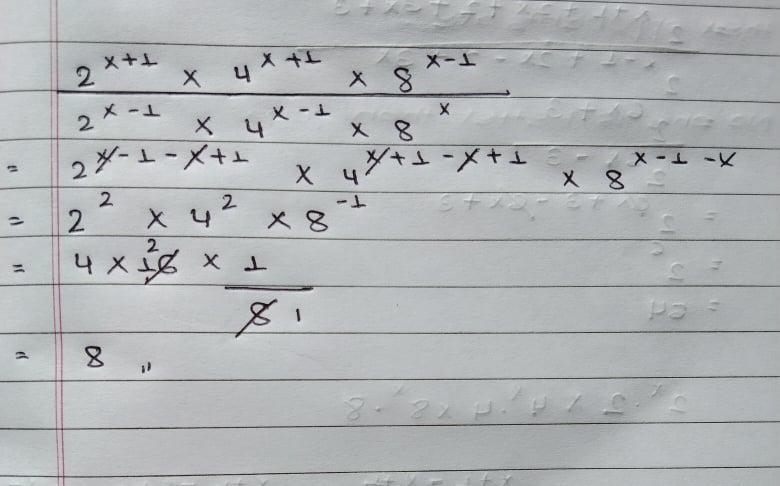 2^{x+1} × 4^{x+1} × 8^{x-1}
2^{x-1} × 4^{x-1} × 8^{x}
= 2^{x-1-x+1} × 4^{x+1-x+1} × 8^{x-1-x}
= 2^{2} × 4^{2} × 8^{-1}
= 4 × 16 2 × 1
8 1
= 8 "